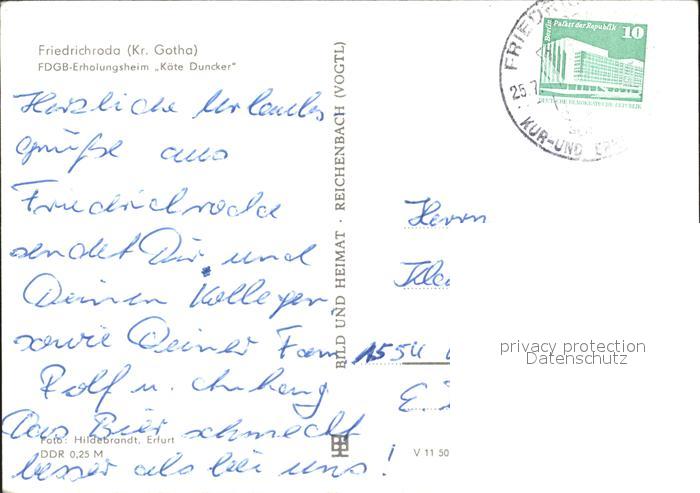 Friedrichroda (Kr. Gotha)
FDGB-Erholungsheim „Käte Duncker"
Herzliche Urlaubs
grüße aus
Friedrichroda
sendet Dir und
Deinen Kollegen,
sowie Deiner Fam
Rolf u. Anhang
Das Bier schmeckt
besser als bei uns!
Foto: Hildebrandt, Erfurt
DDR 0,25 M
BILD UND HEIMAT · REICHENBACH (VOGTL)
V 11 50
FRIEDRI
25.7
KUR-UND
Berlin Palast der Republik 10
DEUTSCHE DEMOKRATISCHE REPUBLIK
Herrn
1554
privacy protection
Datenschutz